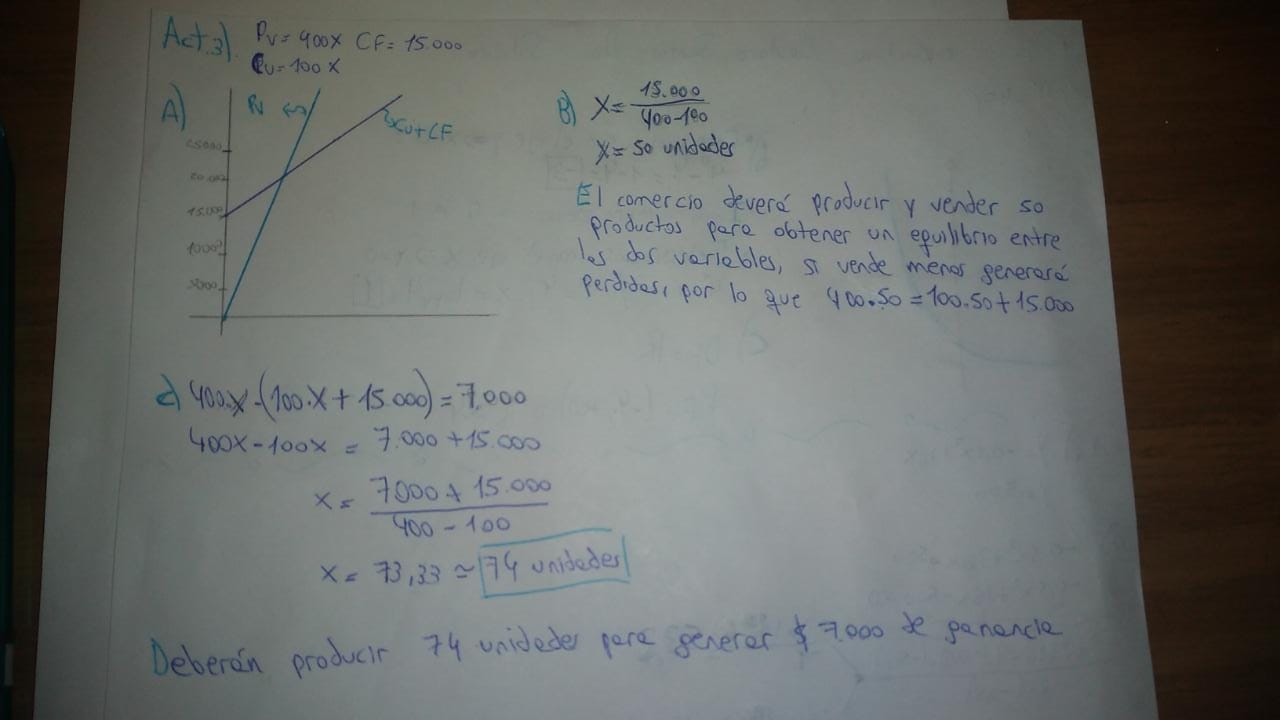 Act.3). Pv= 400x CF= 15.000
Cv= 100 x
A)
Pv
Cv+CF
25000
20.000
15.000
10000
5000
B) X= 15.000
400-100
X= 50 unidades
El comercio deverá producir y vender 50
productos para obtener un equilibrio entre
las dos variables, si vende menos generará
perdidas, por lo que 400.50 = 100.50 + 15.000
c) 400.x-(100.x + 15.000) = 7.000
400x-100x = 7.000 + 15.000
x = 7000 + 15.000
400 - 100
x = 73,33 ≃ 74 unidades
Deberán producir 74 unidades para generar $ 7.000 de ganancia